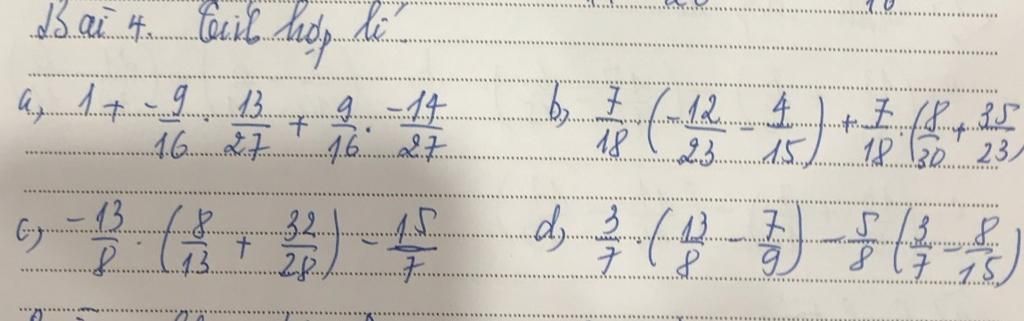 Bài 4. Tính hợp lí.
a, 1 + -9/16 . 13/27 + 9/16 . -14/27 b, 7/18 . (-12/23 - 4/15) + 7/18 . (8/30 + 35/23)
c, -13/8 . (8/13 + 32/28) - 15/7 d, 3/7 . (13/8 - 7/9) - 5/8 (3/7 - 8/15)